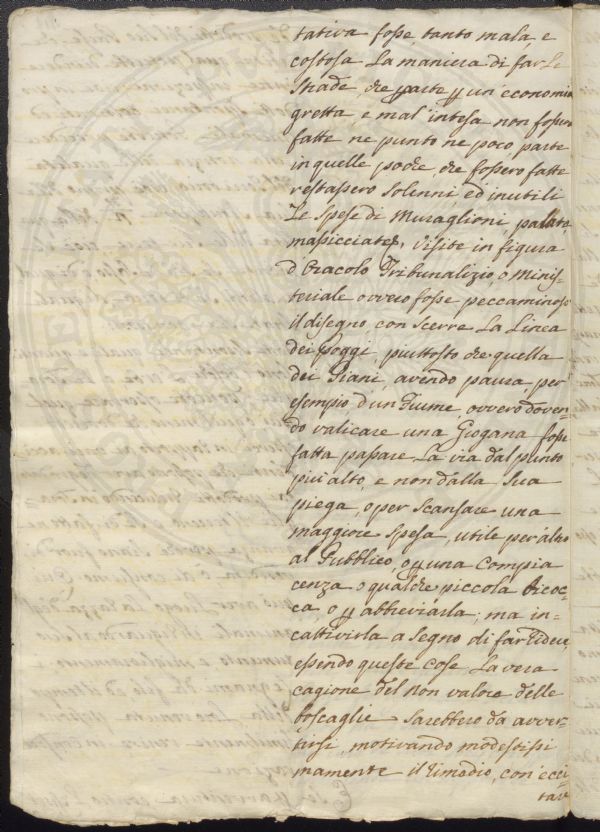 tativa fosse, tanto mala, e
costosa La maniera di far Le
Strade, che parte p un' economia
gretta, e mal' intesa non fossero
fatte ne punto ne poco, parte
in quelle poche, che fossero fatte
restassero solenni, ed inutili
Le Spese di Muraglioni,
massicciate, Visite in figura
d'Oracolo Tribunalizio, o Minis-
teriale ovvero fosse peccaminoso
il disegno, con scerre La Linea
dei Poggi, piuttosto che quella
dei Piani, avendo paura, per
esempio d'un Fiume, ovvero doven-
do valicare una Giogana fosse
fatta passare La via dal punto
piu' alto, e non dalla Sua
piega, o per scansare una
maggiore Spesa, utile per altro
al Pubblico, o p una Compia
cenza o qualche piccola Bicoc-
ca, o p abbreviarla; ma in-
cattivirla a Segno di far ridere,
essendo queste cose, La vera
cagione del non valore delle
boscaglie Sarebbero da avver-
tirsi, motivando modestissi
mamente il rimedio, con ecci-
tar